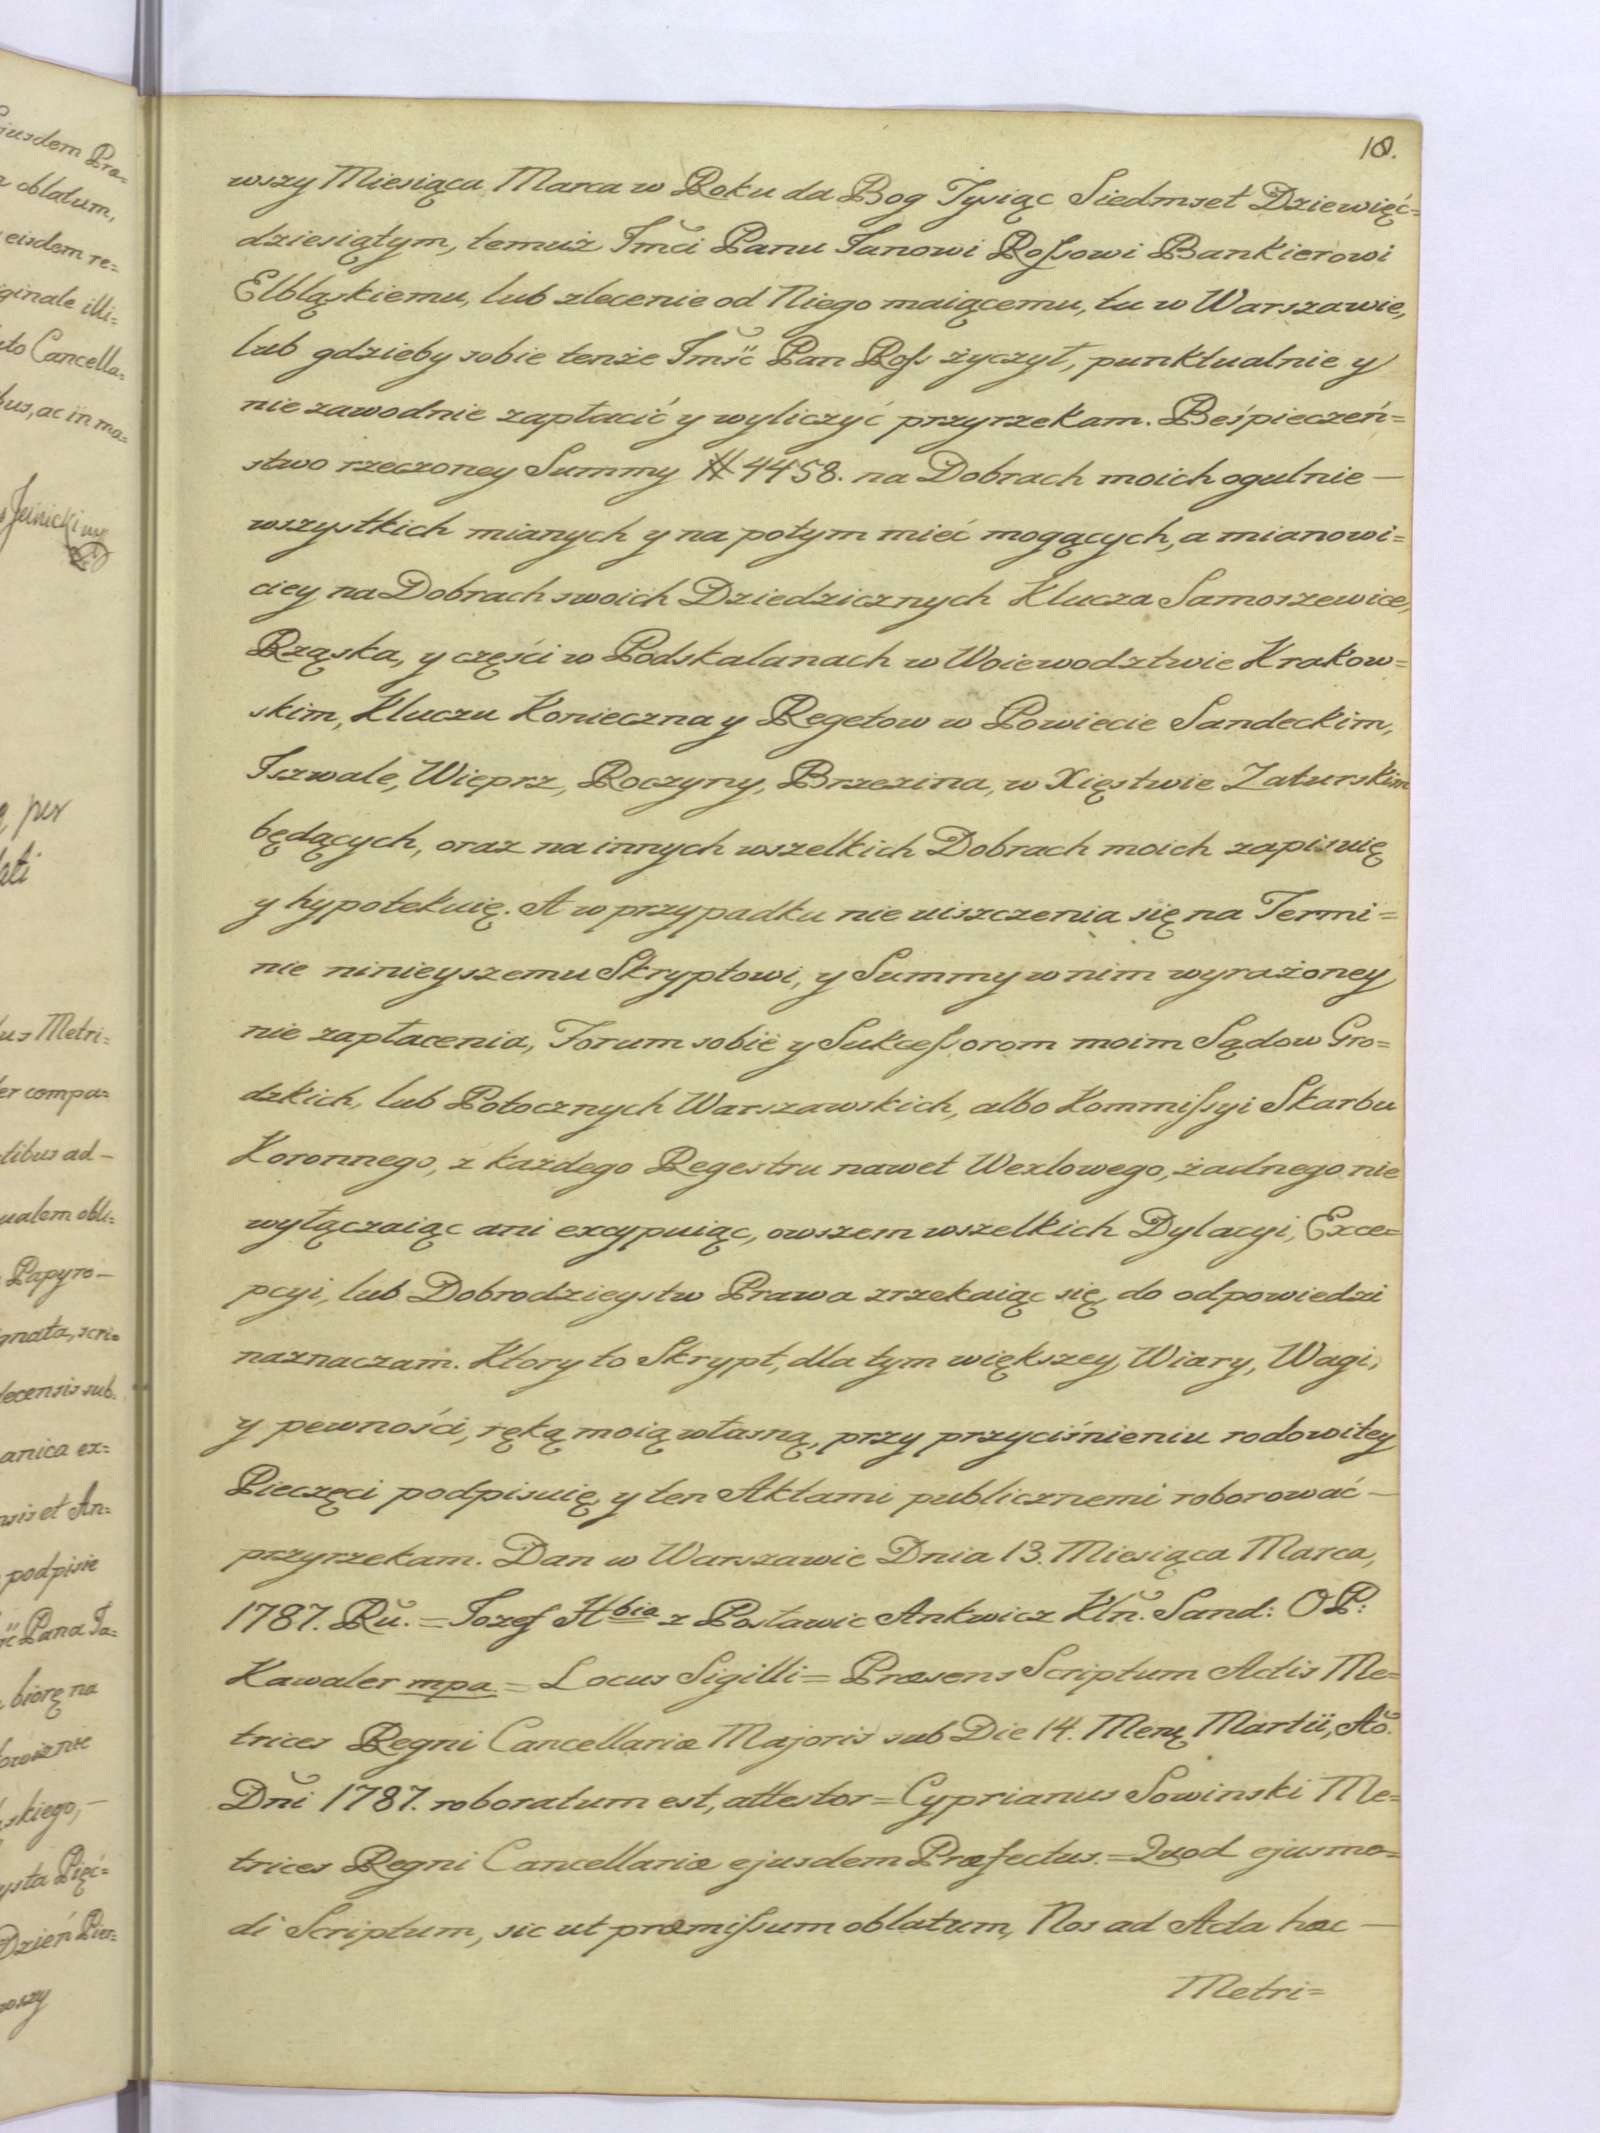 18.
wszy Miesiąca Marca w Roku da Bog Tysiąc Siedmset Dziewięć=
dziesiątym, temuż Jmći Panu Janowi Rossowi Bankierowi
Elbląskiemu, lub zlecenie od Niego maiącemu, tu w Warszawie,
lub gdzieby sobie tenże Jmść Pan Ross życzył, punktualnie y
nie zawodnie zapłacić y wyliczyć przyrzekam. Beśpieczeń=
stwo rzeczoney Summy # 4458. na Dobrach moich ogulnie —
wszystkich mianych y na potym mieć mogących, a mianowi=
ciey na Dobrach swoich Dziedzicznych Klucza Samoszewice,
Rząska, y części w Podskalanach w Woiewodztwie Krakow=
skim, Kluczu Konieczna y Regetow w Powiecie Sandeckim,
Jszwale, Wieprz, Roczyny, Brzezina, w Xięstwie Zaturskim
będących, oraz na innych wszelkich Dobrach moich zapisuię
y hypotekuię. A w przypadku nie uiszczenia się na Termi=
nie ninieyszemu Skryptowi, y Summy w nim wyrażoney
nie zapłacenia, Forum sobie y Sukcessorom moim Sądow Gro=
dzkich, lub Potocznych Warszawskich, albo Kommissyi Skarbu
Koronnego, z każdego Regestru nawet Wexlowego, żadnego nie
wyłączaiąc ani excypuiąc, owszem wszelkich Dylacyi, Exce=
pcyi, lub Dobrodzieystw Prawa zrzekaiąc się, do odpowiedzi
naznaczam. Ktory to Skrypt, dla tym większey Wiary, Wagi,
y pewności, ręką moią własną, przy przyciśnieniu rodowitey
Pieczęci podpisuię, y ten Aktami publicznemi roborować —
przyrzekam. Dan w Warszawie Dnia 13. Miesiąca Marca,
1787. Rŭ. = Jozef Hbia z Posławic Ankwicz Kłn. Sand: OP:
Kawaler mpa = Locus Sigilli = Præsens Scriptum Actis Me=
trices Regni Cancellariæ Majoris sub Die 14. Menę Martii, Ao.
Dni 1787. roboratum est, attestor = Cyprianus Sowinski Me=
trices Regni Cancellariæ ejusdem Præfectus. = Quod ejusmo=
di Scriptum, sic ut præmissum oblatum, Nos ad Acta hæc —
Metri=